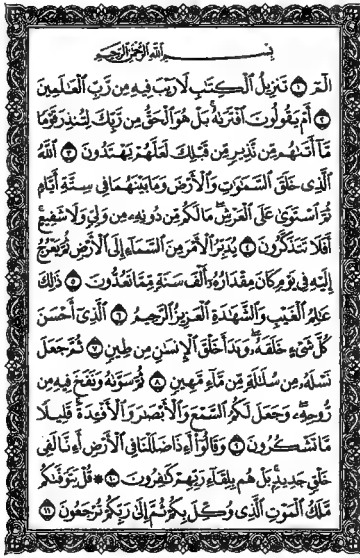 بِسْمِ اللَّهِ الرَّحْمَٰنِ الرَّحِيمِ
الٓمٓ ۝١ تَنزِيلُ ٱلْكِتَٰبِ لَا رَيْبَ فِيهِ مِن رَّبِّ ٱلْعَٰلَمِينَ
۝٢ أَمْ يَقُولُونَ ٱفْتَرَىٰهُ بَلْ هُوَ ٱلْحَقُّ مِن رَّبِّكَ لِتُنذِرَ قَوْمًا
مَّآ أَتَىٰهُم مِّن نَّذِيرٍ مِّن قَبْلِكَ لَعَلَّهُمْ يَهْتَدُونَ ۝٣ ٱللَّهُ
ٱلَّذِى خَلَقَ ٱلسَّمَٰوَٰتِ وَٱلْأَرْضَ وَمَا بَيْنَهُمَا فِى سِتَّةِ أَيَّامٍ
ثُمَّ ٱسْتَوَىٰ عَلَى ٱلْعَرْشِ مَا لَكُم مِّن دُونِهِۦ مِن وَلِىٍّ وَلَا شَفِيعٍ
أَفَلَا تَتَذَكَّرُونَ ۝٤ يُدَبِّرُ ٱلْأَمْرَ مِنَ ٱلسَّمَآءِ إِلَى ٱلْأَرْضِ ثُمَّ يَعْرُجُ
إِلَيْهِ فِى يَوْمٍ كَانَ مِقْدَارُهُۥٓ أَلْفَ سَنَةٍ مِّمَّا تَعُدُّونَ ۝٥ ذَٰلِكَ
عَٰلِمُ ٱلْغَيْبِ وَٱلشَّهَٰدَةِ ٱلْعَزِيزُ ٱلرَّحِيمُ ۝٦ ٱلَّذِىٓ أَحْسَنَ
كُلَّ شَىْءٍ خَلَقَهُۥ وَبَدَأَ خَلْقَ ٱلْإِنسَٰنِ مِن طِينٍ ۝٧ ثُمَّ جَعَلَ
نَسْلَهُۥ مِن سُلَٰلَةٍ مِّن مَّآءٍ مَّهِينٍ ۝٨ ثُمَّ سَوَّىٰهُ وَنَفَخَ فِيهِ مِن
رُّوحِهِۦ وَجَعَلَ لَكُمُ ٱلسَّمْعَ وَٱلْأَبْصَٰرَ وَٱلْأَفْـِٔدَةَ قَلِيلًا
مَّا تَشْكُرُونَ ۝٩ وَقَالُوٓا۟ أَءِذَا ضَلَلْنَا فِى ٱلْأَرْضِ أَءِنَّا لَفِى
خَلْقٍ جَدِيدٍۭ بَلْ هُم بِلِقَآءِ رَبِّهِمْ كَٰفِرُونَ ۝١٠ ۞ قُلْ يَتَوَفَّىٰكُم
مَّلَكُ ٱلْمَوْتِ ٱلَّذِى وُكِّلَ بِكُمْ ثُمَّ إِلَىٰ رَبِّكُمْ تُرْجَعُونَ ۝١١